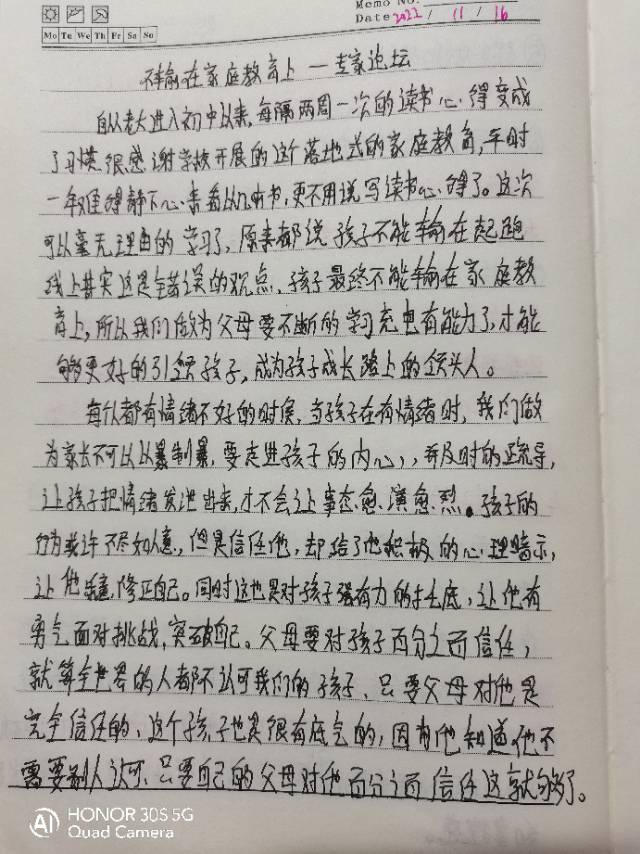 Memo No.
Date 2022 / 11 / 16
Mo Tu We Th Fr Sa Su
不输在家庭教育上 — 专家论坛
自从老大进入初中以来,每隔两周一次的读书心得变成
了习惯,很感谢学校开展的这个落地式的家庭教育,平时
一年难得静下心来看从听书,更不用说写读书心得了。这次
可以毫无理由的学习了,原来都说孩子不能输在起跑
线上其实这是错误的观点,孩子最终不能输在家庭教
育上,所以我们做为父母要不断的学习充电有能力了,才能
够更好的引领孩子,成为孩子成长路上的领头人。
每个人都有情绪不好的时侯,当孩子在有情绪时,我们做
为家长不可以以暴制暴,要走进孩子的内心,并及时的疏导,
让孩子把情绪发泄出来,才不会让事态愈演愈烈。孩子的
行为或许不尽如人意,但是信任他,却给了他积极的心理暗示,
让他乐意修正自己。同时这也是对孩子强有力的托底,让他有
勇气面对挑战,突破自己。父母要对孩子百分之百信任,
就算全世界的人都不认可我们的孩子,只要父母对他是
完全信任的,这个孩子也是很有底气的,因为他知道他不
需要别人认可,只要自己的父母对他百分之百信任这就够了。
AI HONOR 30S 5G
Quad Camera